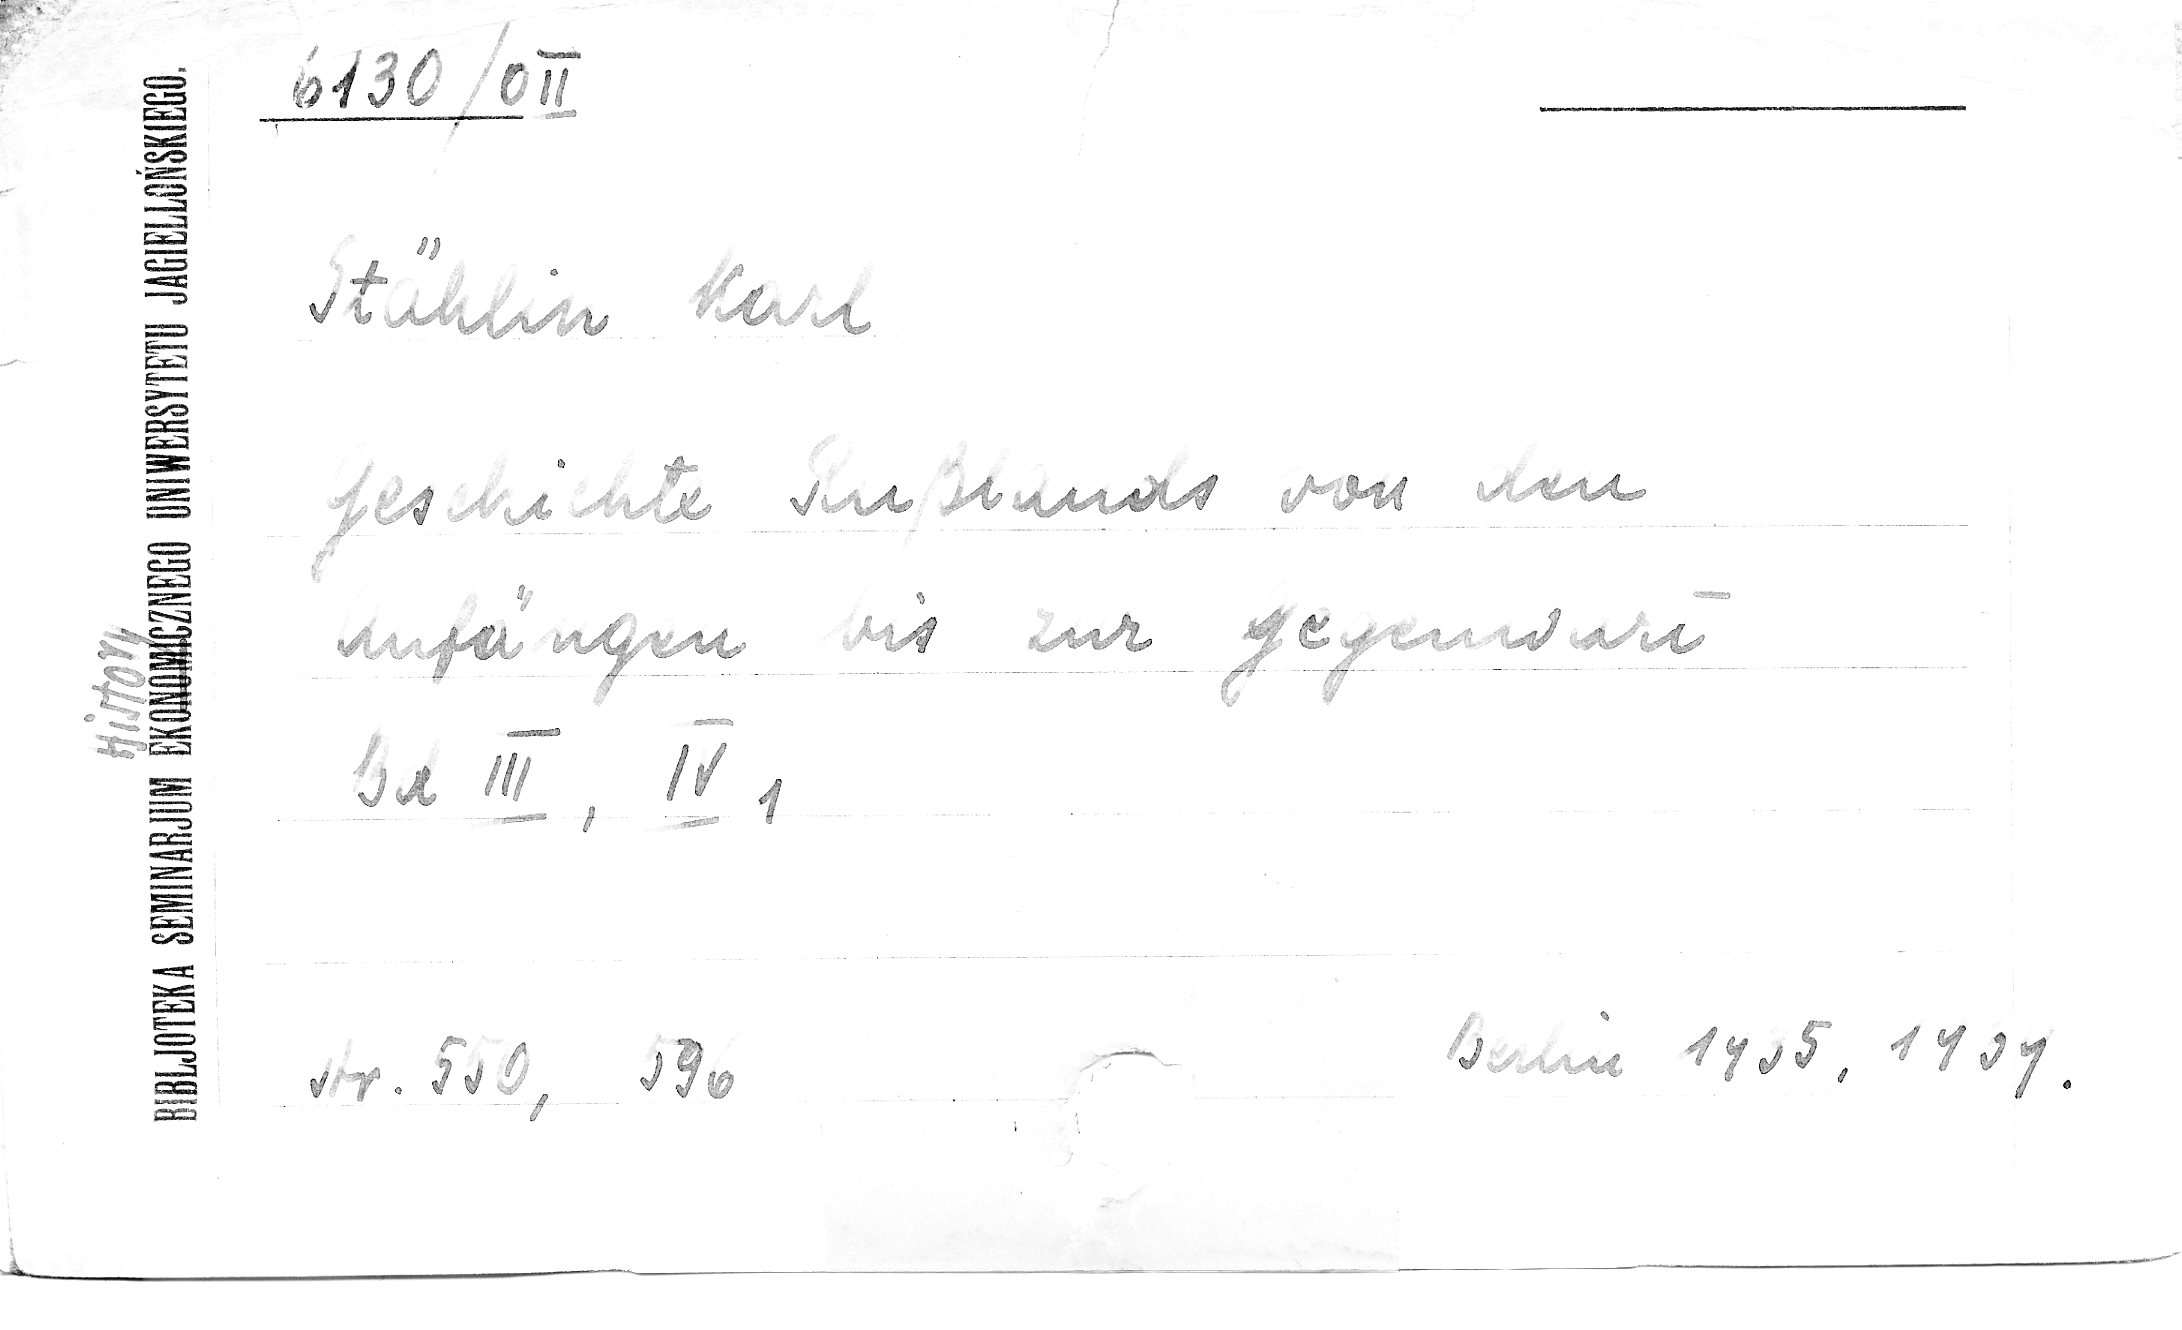 6130/0II
Stählin Karl
Geschichte Rußlands von den
Anfängen bis zur Gegenwart
Bd III, IV 1
str. 550, 596
Berlin 1935, 1939.
History
BIBLJOTEKA SEMINARJUM EKONOMICZNEGO UNIWERSYTETU JAGIELLOŃSKIEGO.